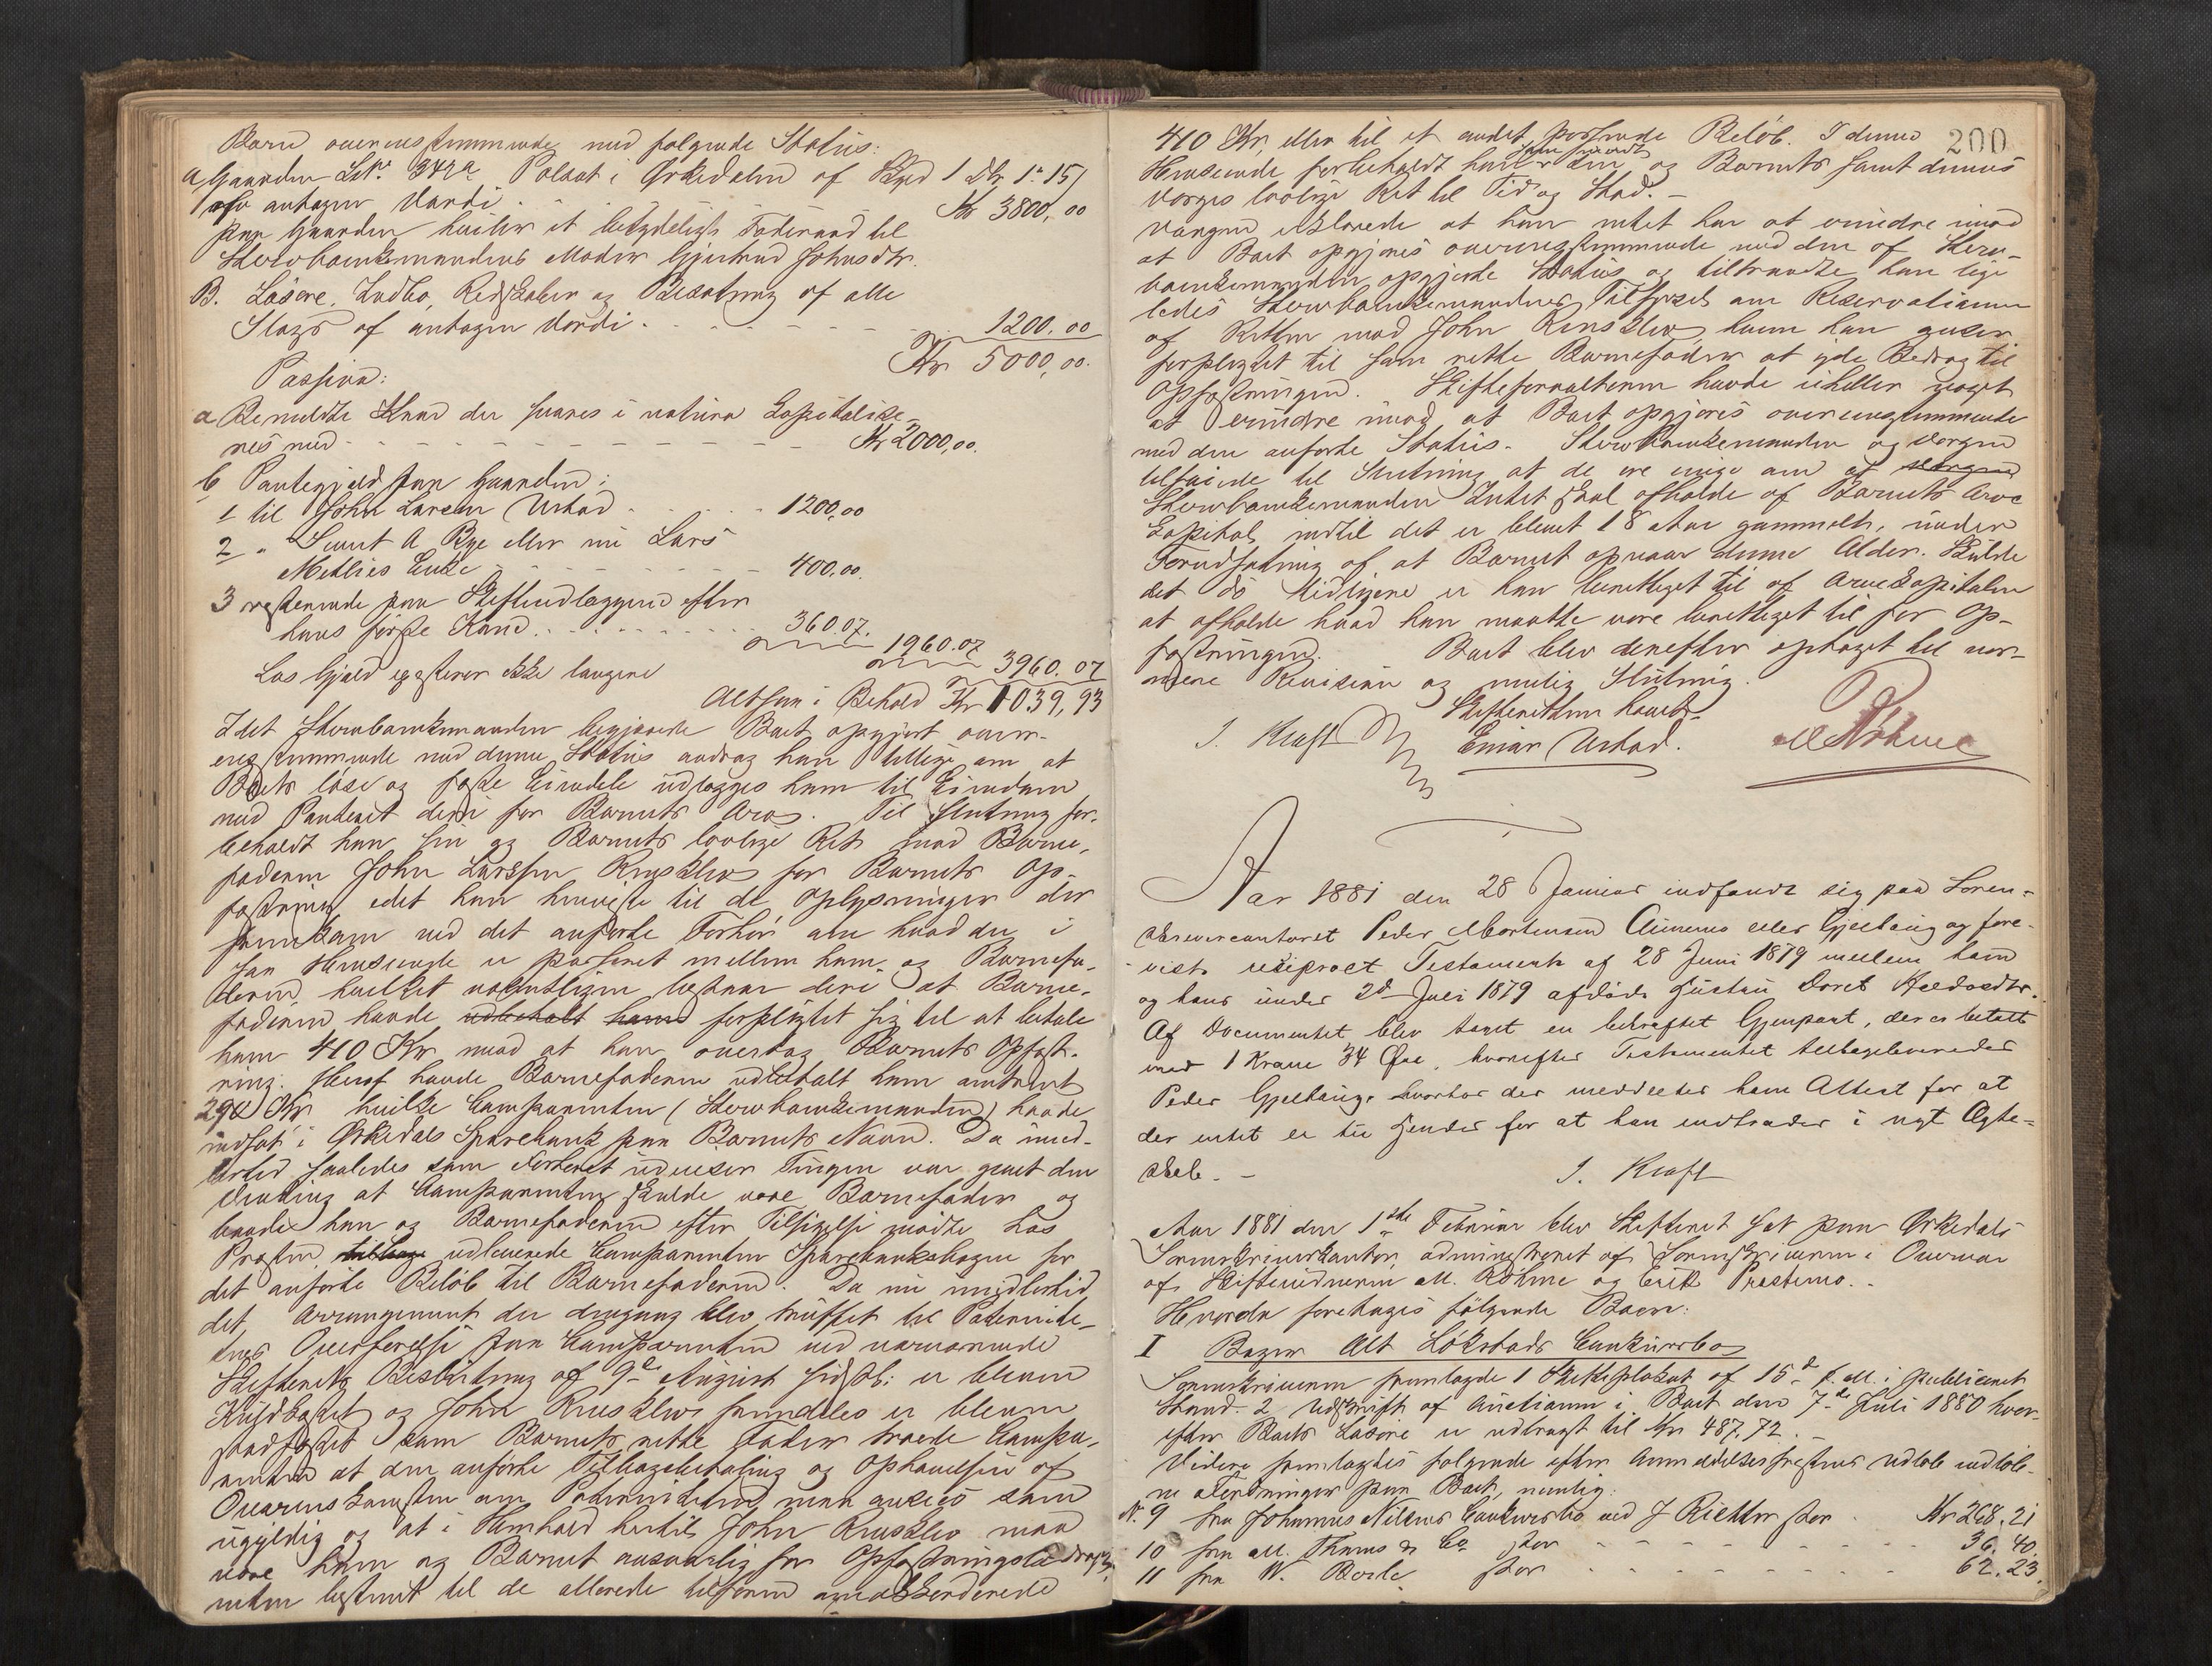 Boen overensstemmende med følgende Status:
a Gaarden LNr. 342a Polaat i Ørkedalen af Skyld 1 Dlr 1 15
afr antagen Værdi Kr 3800,00
Paa Gaarden hviler et betydeligt Føderaad til
Stervboenkemandens Moder Gjertrud Johnsdtr.
B. Løsøre, Indbo, Redskaber og Besætning af alle
Slags af antagen Værdi 1200.00
Kr 5000,00.
Passiva:
a Bemeldte Kaar der svares i natura Kapitalise-
res med Kr 2000,00.
b Pantegjæld paa Gaarden:
1 til John Larsen Ustad 1200,00
2 " Sivert A Rye eller nu Lars
Methies 400,00.
3 resterende paa Skifteudlæggene efter
hans første Kone 360.07.
1960.07
3960.07
Løs Gjæld existerer ikke længere
Altsaa i Behold Kr 1039,93
Idet Stervboenkemanden begjærede Boet opgjort over-
ensstemmende med denne Status androg han tillige om at
Boets løse og faste Eiendele udlægges ham til Eiendom
med Panteret deri for Barnets Arv. Til Slutning for-
beholdt han sin og Barnets lovlige Ret mod Barne-
faderen John Larssen for Barnets Op-
fostring idet han henviste til de Oplysninger der
fremkom ved det anførte Forhør om hvad der i
saa Henseende er passeret mellem ham og Barnefa-
deren, hvilket væsentligen bestaar deri at Barne-
faderen havde udbetalt ham forpligtet sig til at betale
ham 410 Kr mod at han overtog Barnets Opfost-
ring. Heraf havde Barnefaderen udbetalt ham omtrent
290 Kr hvilke Comparenten (Stervboenkemanden) havde
indsat i Ørkedals Sparebank paa Barnets Navn. Da imid-
lertid saaledes som Forhøret udviser Tingen var givet den
Vending at Comparenten skulde være Barnefader og
baade han og Barnefaderen efter Tilsigelse mødte hos
Presten, tilbage udleverede Comparenten Sparebanksbogen for
det anførte Beløb til Barnefaderen. Da nu imidlertid
det Arrangement der dengang blev truffet til Paternite-
tens Overførelse paa Comparenten ved nærværende
Skifterets Beslutning af 9de August sidstl: er bleven
Krydskastet og John fremdeles er bleven
stadfæstet som Barnets rette Fader troede Compa-
renten at den anførte Tilbagebetaling og Ophævelse af
Overenskomsten om Paterniteten maa ansees som
ugyldig og at i Henhold hertil John maa
være ham og Barnet ansvarlig for Opfostringsbidraget,
enten bestemt til de allerede tilforn omakkorderede
200
410 Kr, eller til et andet passende Beløb. I denne
Henseende forbeholdt han sin og Barnets samt dennes
Værges lovlige Ret til Tid og Sted. -
Værgen erklærede at han intet har at erindre imod
at Boet opgjøres overensstemmende med den af Sterv-
boenkemanden opgjorte Status og tiltraadte han lige
ledes Stervboenkemandens Tilførsel om Reservationen
af Retten mod John hvem han anser
forpligtet til som rette Barnefader at yde Bidrag til
Opfostringen. Skifteforvalteren havde ei heller noget
at erindre imod at Boet opgjøres overensstemmende
med den anførte Status. Stervboenkemanden og Værgen
tilføiede til Slutning at de ere enige om at Værgen
Stervboenkemanden Intet skal afholde af Barnets Arve
Kapital, indtil det er blevet 18 Aar gammelt, under
Forudsætning af at Barnet opnaar denne Alder. Skulde
det dø tidligere er han berettiget til af Arvekapitalen
at afholde hvad han maatte være berettiget til for Op-
fostringen. Boet blev derefter optaget til nær-
mere Revision og mulig Slutning.
Skifteretten hævet.
J. Kraft Einar Ustad. M Røhme
Aar 1881 den 28 Januar indfandt sig paa Soren-
skrivercontoret Peder Mortensen Aunemo eller Gjelbaug og fore-
viste reciproct Testament af 28 Juni 1879 mellem ham
og hans under 2d Juli 1879 afdøde Hustru Doret
Af Documentet blev taget en bekræftet Gjenpart, der er betalt
med 1 Krone 34 Øre, hvorefter Testamentet tilbageleveredes
Peder Gjelbaug, hvorhos der meddeeltes ham Attest for at
der intet er til Hinder for at han indtræder i nyt Ægte-
skab. -
J. Kraft
Aar 1881 den 1ste Februar blev Skifteret sat paa Ørkedals
Sorenskriverkontor, administreret af Sorenskriveren i Overvær
af Skiftevidnerne M. Røhme og Erik Præstmo. -
Hvorda foretoges følgende Boer:
I Bager Alt Løkstads Concursbo
Sorenskriveren fremlagde 1 Skifteplakat af 15d f. M. i publiceret
Stand. 2 Udskrift af Auctionen i Boet den 7de Juli 1880 hver-
efter Boets Løsøre er udbragt til Kr 487.72. -
Videre fremlagdes følgende efter Anmeldelsesfristens Udløb indløb-
ne Fordringer paa Boet, nemlig:
N. 9 fra Johannes Nilsens Concursbo ved J Richter stor Kr 268,21
10 fra M. Thams & Co stor 36.40.
11 fra W. stor 62.23.